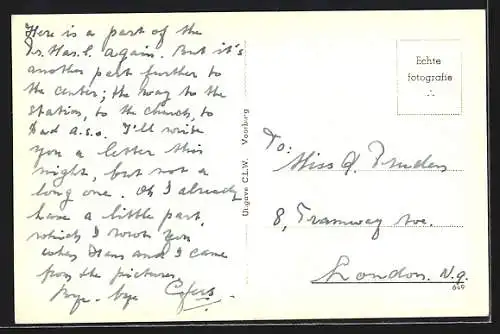 Here is a part of the
Is. Has. l. again. But it's
another part further to
the center; the way to the
station, to the church, to
Bud a.s.o. I'll write
you a letter this
night, but not a
long one. Oh I already
have a little part,
which I wrote you
when Hans and I came
from the pictures,
Bye. bye
Uitgave C.L.W. Voorburg
Echte
fotografie
To:
Miss J.
8, Tramway Ave.
London. N.9.
649